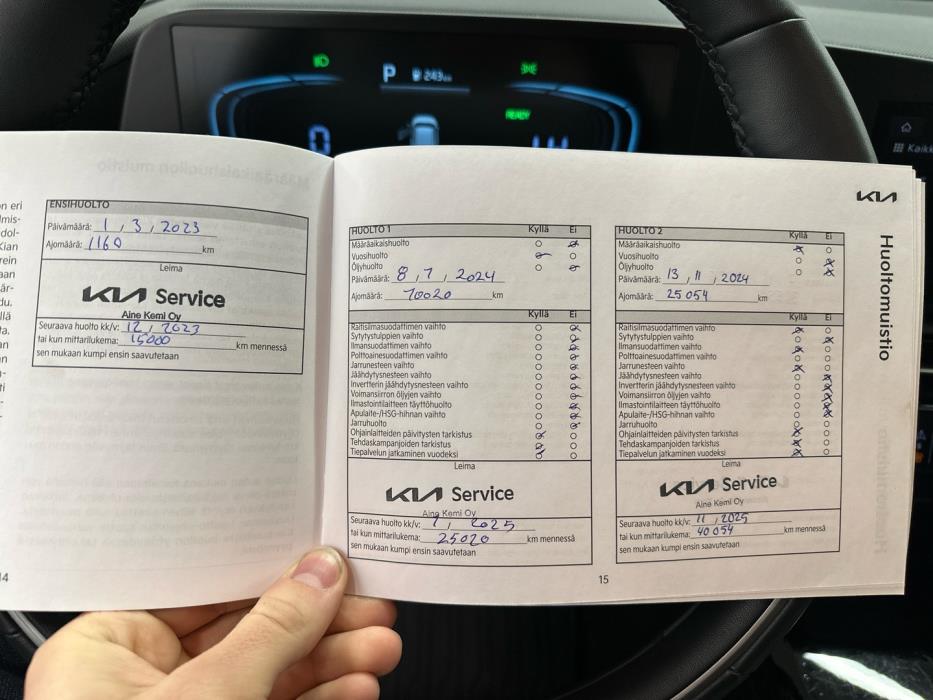 P 243 km
READY
0
Kaikk
ENSIHUOLTO
Päivämäärä: 1 , 3 , 2023
Ajomäärä: 1160 km
Leima
KIA Service
Aine Kemi Oy
Seuraava huolto kk/v: 12 , 2023
tai kun mittarilukema: 15000 km mennessä
sen mukaan kumpi ensin saavutetaan
HUOLTO 1 Kyllä Ei
Määräaikaishuolto
Vuosihuolto
Öljyhuolto
Päivämäärä: 8 , 7 , 2024
Ajomäärä: 10020 km
Kyllä Ei
Raitisilmasuodattimen vaihto
Sytytystulppien vaihto
Ilmansuodattimen vaihto
Polttoainesuodattimen vaihto
Jarrunesteen vaihto
Jäähdytysnesteen vaihto
Invertterin jäähdytysnesteen vaihto
Voimansiirron öljyjen vaihto
Ilmastointilaitteen täyttöhuolto
Apulaite-/HSG-hihnan vaihto
Jarruhuolto
Ohjainlaitteiden päivitysten tarkistus
Tehdaskampanjoiden tarkistus
Tiepalvelun jatkaminen vuodeksi
Leima
KIA Service
Aine Kemi Oy
Seuraava huolto kk/v: 7 , 2025
tai kun mittarilukema: 25020 km mennessä
sen mukaan kumpi ensin saavutetaan
KIA
Huoltomuistio
HUOLTO 2 Kyllä Ei
Määräaikaishuolto
Vuosihuolto
Öljyhuolto
Päivämäärä: 13 , 11 , 2024
Ajomäärä: 25054 km
Kyllä Ei
Raitisilmasuodattimen vaihto
Sytytystulppien vaihto
Ilmansuodattimen vaihto
Polttoainesuodattimen vaihto
Jarrunesteen vaihto
Jäähdytysnesteen vaihto
Invertterin jäähdytysnesteen vaihto
Voimansiirron öljyjen vaihto
Ilmastointilaitteen täyttöhuolto
Apulaite-/HSG-hihnan vaihto
Jarruhuolto
Ohjainlaitteiden päivitysten tarkistus
Tehdaskampanjoiden tarkistus
Tiepalvelun jatkaminen vuodeksi
Leima
KIA Service
Aine Kemi Oy
Seuraava huolto kk/v: 11 , 2025
tai kun mittarilukema: 40054 km mennessä
sen mukaan kumpi ensin saavutetaan
15